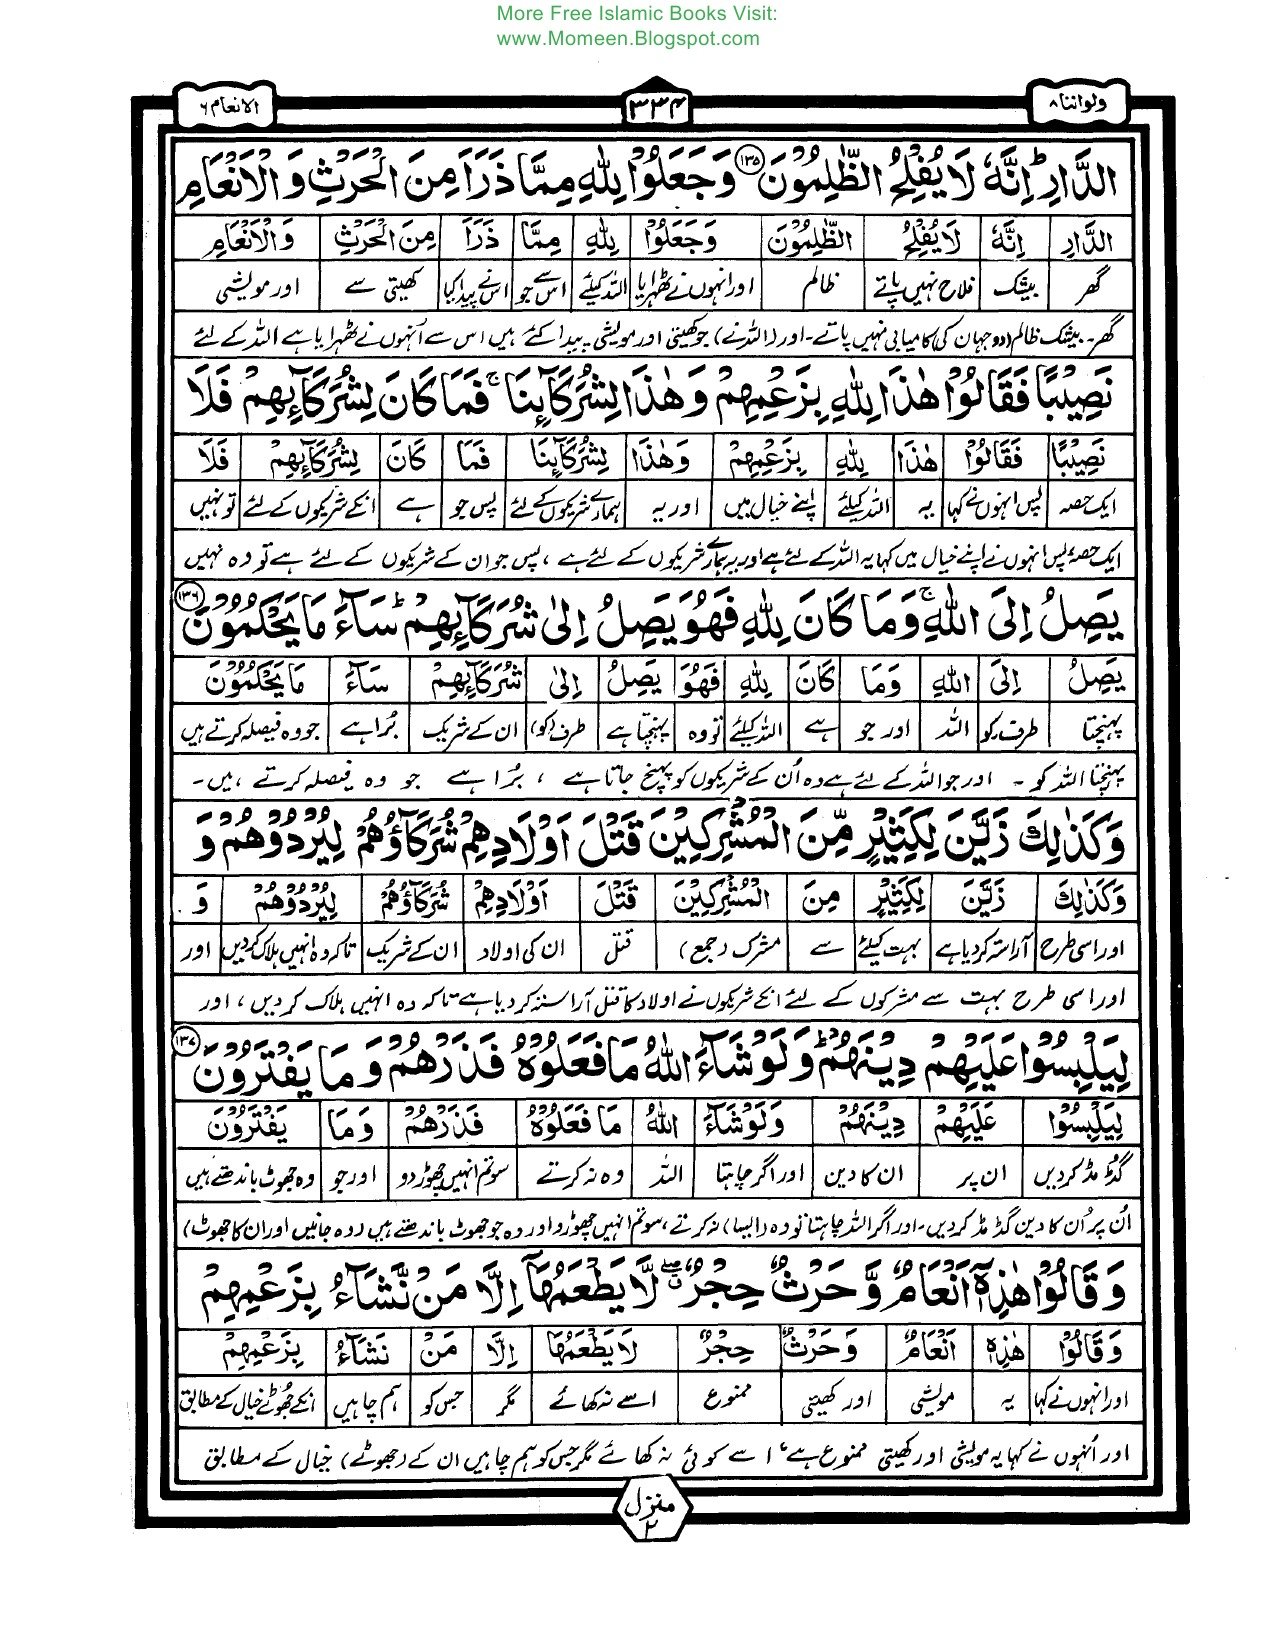 More Free Islamic Books Visit:
www.Momeen.Blogspot.com
ولواننا ۸
۳۳۴
الانعام ۶
الدَّارِ ؕ اِنَّهٗ لَا یُفْلِحُ الظّٰلِمُوْنَ ۱۳۵ وَجَعَلُوْا لِلّٰهِ مِمَّا ذَرَاَ مِنَ الْحَرْثِ وَالْاَنْعَامِ
الدَّارِ اِنَّهٗ لَا یُفْلِحُ الظّٰلِمُوْنَ وَجَعَلُوْا لِلّٰهِ مِمَّا ذَرَاَ مِنَ الْحَرْثِ وَالْاَنْعَامِ
گھر بیشک فلاح نہیں پاتے ظالم اور انہوں نے ٹھہرایا اللہ کیلئے اس سے جو اس نے پیدا کیا کھیتی سے اور مویشی
گھر۔ بیشک ظالم (دو جہان کی) کامیابی نہیں پاتے۔ اور (اللہ نے) جو کھیتی اور مویشی پیدا کئے ہیں اس سے اُنہوں نے ٹھہرایا ہے اللہ کے لئے
نَصِیْبًا فَقَالُوْا هٰذَا لِلّٰهِ بِزَعْمِهِمْ وَهٰذَا لِشُرَكَآئِنَا ۚ فَمَا كَانَ لِشُرَكَآئِهِمْ فَلَا
نَصِیْبًا فَقَالُوْا هٰذَا لِلّٰهِ بِزَعْمِهِمْ وَهٰذَا لِشُرَكَآئِنَا فَمَا كَانَ لِشُرَكَآئِهِمْ فَلَا
ایک حصہ پس انہوں نے کہا یہ اللہ کیلئے اپنے خیال میں اور یہ ہمارے شریکوں کے لئے پس جو ہے انکے شریکوں کے لئے تو نہیں
ایک حصہ، پس انہوں نے اپنے خیال میں کہا یہ اللہ کے لئے ہے اور یہ ہمارے شریکوں کے لئے ہے، پس جو ان کے شریکوں کے لئے ہے تو وہ نہیں
یَصِلُ اِلَى اللّٰهِ ۚ وَمَا كَانَ لِلّٰهِ فَهُوَ یَصِلُ اِلٰى شُرَكَآئِهِمْ ؕ سَآءَ مَا یَحْكُمُوْنَ ۱۳۶
یَصِلُ اِلَى اللّٰهِ وَمَا كَانَ لِلّٰهِ فَهُوَ یَصِلُ اِلٰى شُرَكَآئِهِمْ سَآءَ مَا یَحْكُمُوْنَ
پہنچتا طرف۔ کو اللہ اور جو ہے اللہ کیلئے تو وہ پہنچتا ہے طرف (کو) ان کے شریک بُرا ہے جو وہ فیصلہ کرتے ہیں
پہنچتا اللہ کو ۔ اور جو اللہ کے لئے ہے وہ اُن کے شریکوں کو پہنچ جاتا ہے ، بُرا ہے جو وہ فیصلہ کرتے ہیں۔
وَكَذٰلِكَ زَیَّنَ لِكَثِیْرٍ مِّنَ الْمُشْرِكِیْنَ قَتْلَ اَوْلَادِهِمْ شُرَكَآؤُهُمْ لِیُرْدُوْهُمْ وَ
وَكَذٰلِكَ زَیَّنَ لِكَثِیْرٍ مِنَ الْمُشْرِكِیْنَ قَتْلَ اَوْلَادِهِمْ شُرَكَآؤُهُمْ لِیُرْدُوْهُمْ وَ
اور اسی طرح آراستہ کر دیا ہے بہت کیلئے سے مشرک (جمع) قتل ان کی اولاد ان کے شریک تاکہ وہ انہیں ہلاک کر دیں اور
اور اسی طرح بہت سے مشرکوں کے لئے انکے شریکوں نے اولاد کا قتل آراستہ کر دیا ہے تاکہ وہ انہیں ہلاک کر دیں، اور
لِیَلْبِسُوْا عَلَیْهِمْ دِیْنَهُمْ ؕ وَلَوْ شَآءَ اللّٰهُ مَا فَعَلُوْهُ فَذَرْهُمْ وَمَا یَفْتَرُوْنَ ۱۳۷
لِیَلْبِسُوْا عَلَیْهِمْ دِیْنَهُمْ وَلَوْ شَآءَ اللّٰهُ مَا فَعَلُوْهُ فَذَرْهُمْ وَمَا یَفْتَرُوْنَ
گڈ مڈ کر دیں ان پر ان کا دین اور اگر چاہتا اللہ وہ نہ کرتے سو تم انہیں چھوڑ دو اور جو وہ جھوٹ باندھتے ہیں
اُن پر اُن کا دین گڈ مڈ کر دیں۔ اور اگر اللہ چاہتا تو وہ (ایسا) نہ کرتے، سو تم انہیں چھوڑ دو اور وہ جو جھوٹ باندھتے ہیں (وہ جانیں اور ان کا جھوٹ)
وَقَالُوْا هٰذِهٖۤ اَنْعَامٌ وَّحَرْثٌ حِجْرٌ ۖ لَّا یَطْعَمُهَاۤ اِلَّا مَنْ نَّشَآءُ بِزَعْمِهِمْ
وَقَالُوْا هٰذِهٖ اَنْعَامٌ وَحَرْثٌ حِجْرٌ لَا یَطْعَمُهَا اِلَّا مَنْ نَشَآءُ بِزَعْمِهِمْ
اور انہوں نے کہا یہ مویشی اور کھیتی ممنوع اسے نہ کھائے مگر جس کو ہم چاہیں انکے جھُوٹے خیال کے مطابق
اور اُنہوں نے کہا یہ مویشی اور کھیتی ممنوع ہے، اسے کوئی نہ کھائے مگر جس کو ہم چاہیں ان کے (جھوٹے) خیال کے مطابق
منزل ۲